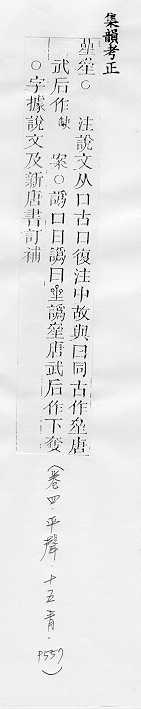 集韻考正
曐𠻮○　注說文从口古口復注中故與曰同古作𠻮唐
武后作𡇹　案○譌口日譌曰曐譌𠻮唐武后作下奪
○字據說文及新唐書訂補
（卷四．平聲．十五青．P557）